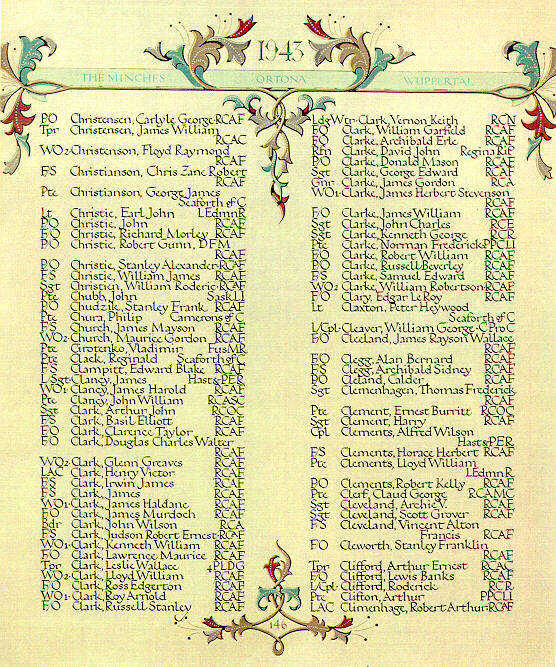 1943
THE MINCHES ORTONA WUPPERTAL
P/O Christensen, Carlyle George RCAF
Tpr Christensen, James William
RCAC
WO2 Christenson, Floyd Raymond
RCAF
F/S Christianson, Chris Zane Robert
RCAF
Pte Christianson, George James
Seaforth of C
Lt Christie, Earl John LEdmnR
P/O Christie, John RCAF
F/O Christie, Richard Morley RCAF
P/O Christie, Robert Gunn, DFM
RCAF
P/O Christie, Stanley Alexander RCAF
F/S Christie, William James RCAF
Sgt Christien, William Roderic RCAF
Pte Chubb, John Sask L.I
P/O Chudzik, Stanley Frank RCAF
Pte Chura, Philip Camerons of C
F/S Church, James Mayson RCAF
WO2 Church, Maurice Gordon RCAF
Pte Cirotenko, Vladimir FusMR
Pte Clack, Reginald Seaforth of C
F/S Clampitt, Edward Blake RCAF
L/Sgt Clancy, James Hast&PER
WO1 Clancy, James Harold RCAF
Pte Clancy, John William RCASC
Sgt Clark, Arthur John RCOC
F/S Clark, Basil Elliott RCAF
F/O Clark, Clarence Taylor RCAF
F/O Clark, Douglas Charles Walter
RCAF
WO2 Clark, Glenn Greaves RCAF
LAC Clark, Henry Victor RCAF
F/S Clark, Irwin James RCAF
F/S Clark, James RCAF
WO1 Clark, James Haldane RCAF
F/O Clark, James Murdoch RCAF
Bdr Clark, John Wilson RCA
F/S Clark, Judson Robert Ernest RCAF
WO1 Clark, Kenneth William RCAF
F/O Clark, Lawrence Maurice RCAF
Tpr Clark, Leslie Wallace 4PLDG
WO2 Clark, Lloyd William RCAF
F/O Clark, Ross Edgerton RCAF
WO1 Clark, Roy Arnold RCAF
F/O Clark, Russell Stanley RCAF
Ldg Wtr Clark, Vernon Keith RCN
F/O Clark, William Garfield RCAF
F/O Clarke, Archibald Erle RCAF
Rfn Clarke, David John Regina Rif
P/O Clarke, Donald Mason RCAF
Sgt Clarke, George Edward RCAF
Gnr Clarke, James Gordon RCA
WO1 Clarke, James Herbert Stevenson
RCAF
F/O Clarke, James William RCAF
Sgt Clarke, John Charles RCE
Sgt Clarke, Kenneth George RCR
Pte Clarke, Norman Frederick PPCLI
F/O Clarke, Robert William RCAF
P/O Clarke, Russell Beverley RCAF
F/S Clarke, Samuel Edward RCAF
WO2 Clarke, William Robertson RCAF
F/O Clary, Edgar LeRoy RCAF
Lt Claxton, Peter Heywood
Seaforth of C
L/Cpl Cleaver, William George C Pro C
F/O Cleeland, James Rayson Wallace
RCAF
F/O Clegg, Alan Bernard RCAF
F/S Clegg, Archibald Sidney RCAF
P/O Cleland, Calder RCAF
Sgt Clemenhagen, Thomas Frederick
RCAF
Pte Clement, Ernest Burritt RCOC
Sgt Clement, Harry RCAF
Cpl Clements, Alfred Wilson
Hast&PER
F/S Clements, Horace Herbert RCAF
Pte Clements, Lloyd William
LEdmnR
P/O Clements, Robert Kelly RCAF
Pte Clerf, Claud George RCAMC
Sgt Cleveland, Archie V. RCAF
Sgt Cleveland, Scott Grover RCAF
F/S Cleveland, Vincent Alton
Francis RCAF
F/O Cleworth, Stanley Franklin
RCAF
Tpr Clifford, Arthur Ernest RCAC
F/O Clifford, Lewis Banks RCAF
L/Cpl Clifford, Roderick RCR
Pte Clifton, Arthur PPCLI
LAC Climenhage, Robert Arthur RCAF
146